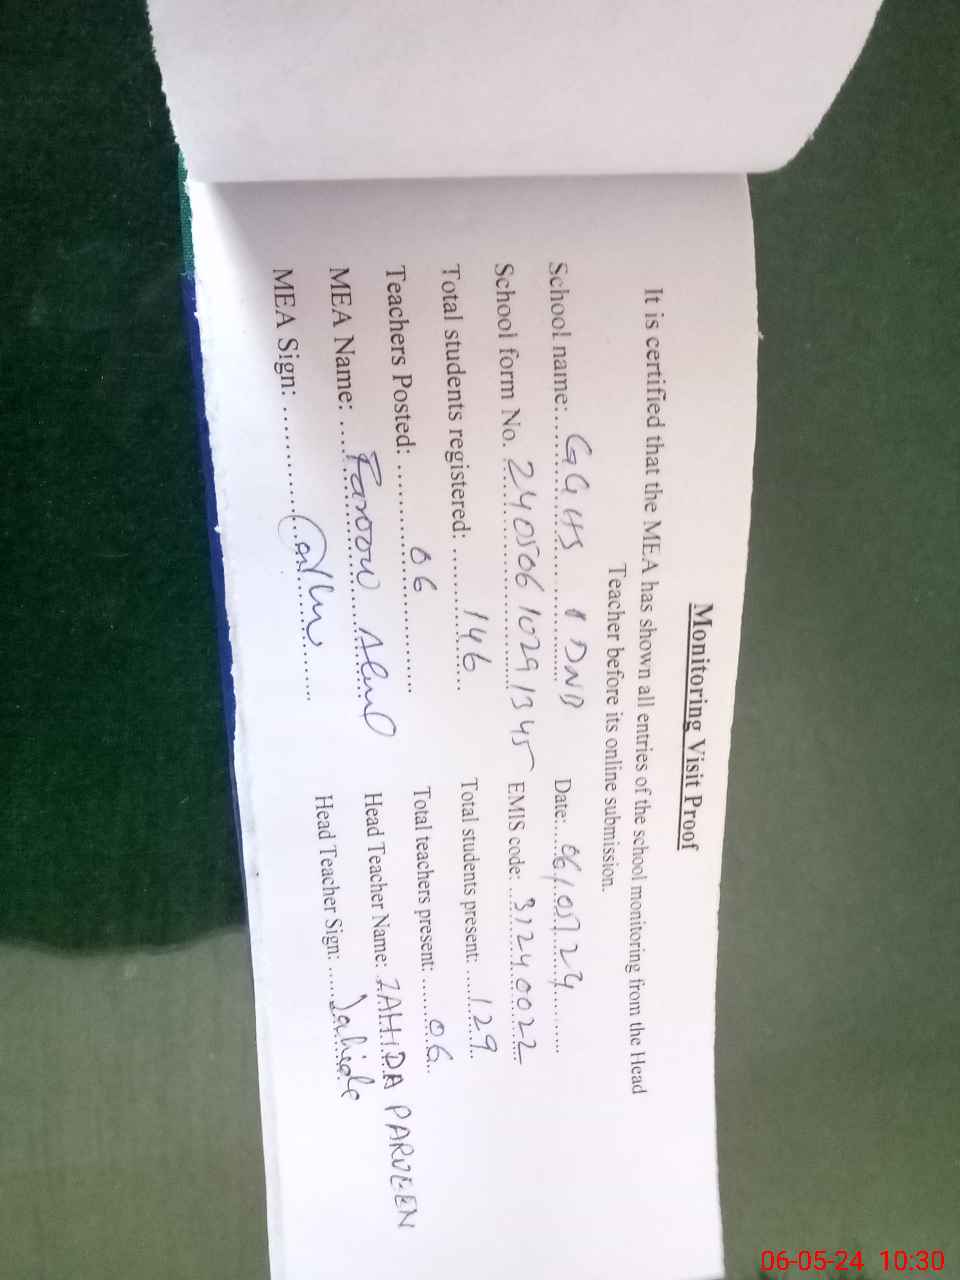 Monitoring Visit Proof
It is certified that the MEA has shown all entries of the school monitoring from the Head
Teacher before its online submission.
School name: GGHS DNB Date: 06/05/24
School form No. 2405061029 1345 EMIS code: 31240022
Total students registered: 146 Total students present: 129
Teachers Posted: 06 Total teachers present: 06
MEA Name: Farooq Head Teacher Name: ZAHIDA PARVEEN
MEA Sign: Head Teacher Sign: Zahida
06-05-24 10:30